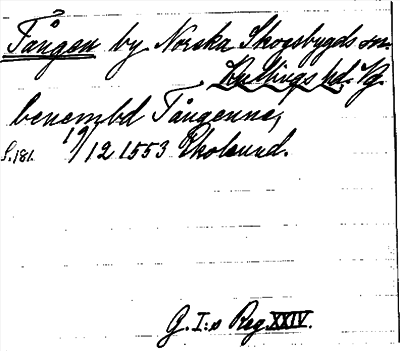 Tången by Norska Skogsbygds sn.
Kullings hd. Vg.
benembd Tångenne,
S. 181. 19/12 1553 Ekolsund.
G. I:s Reg. XXIV.